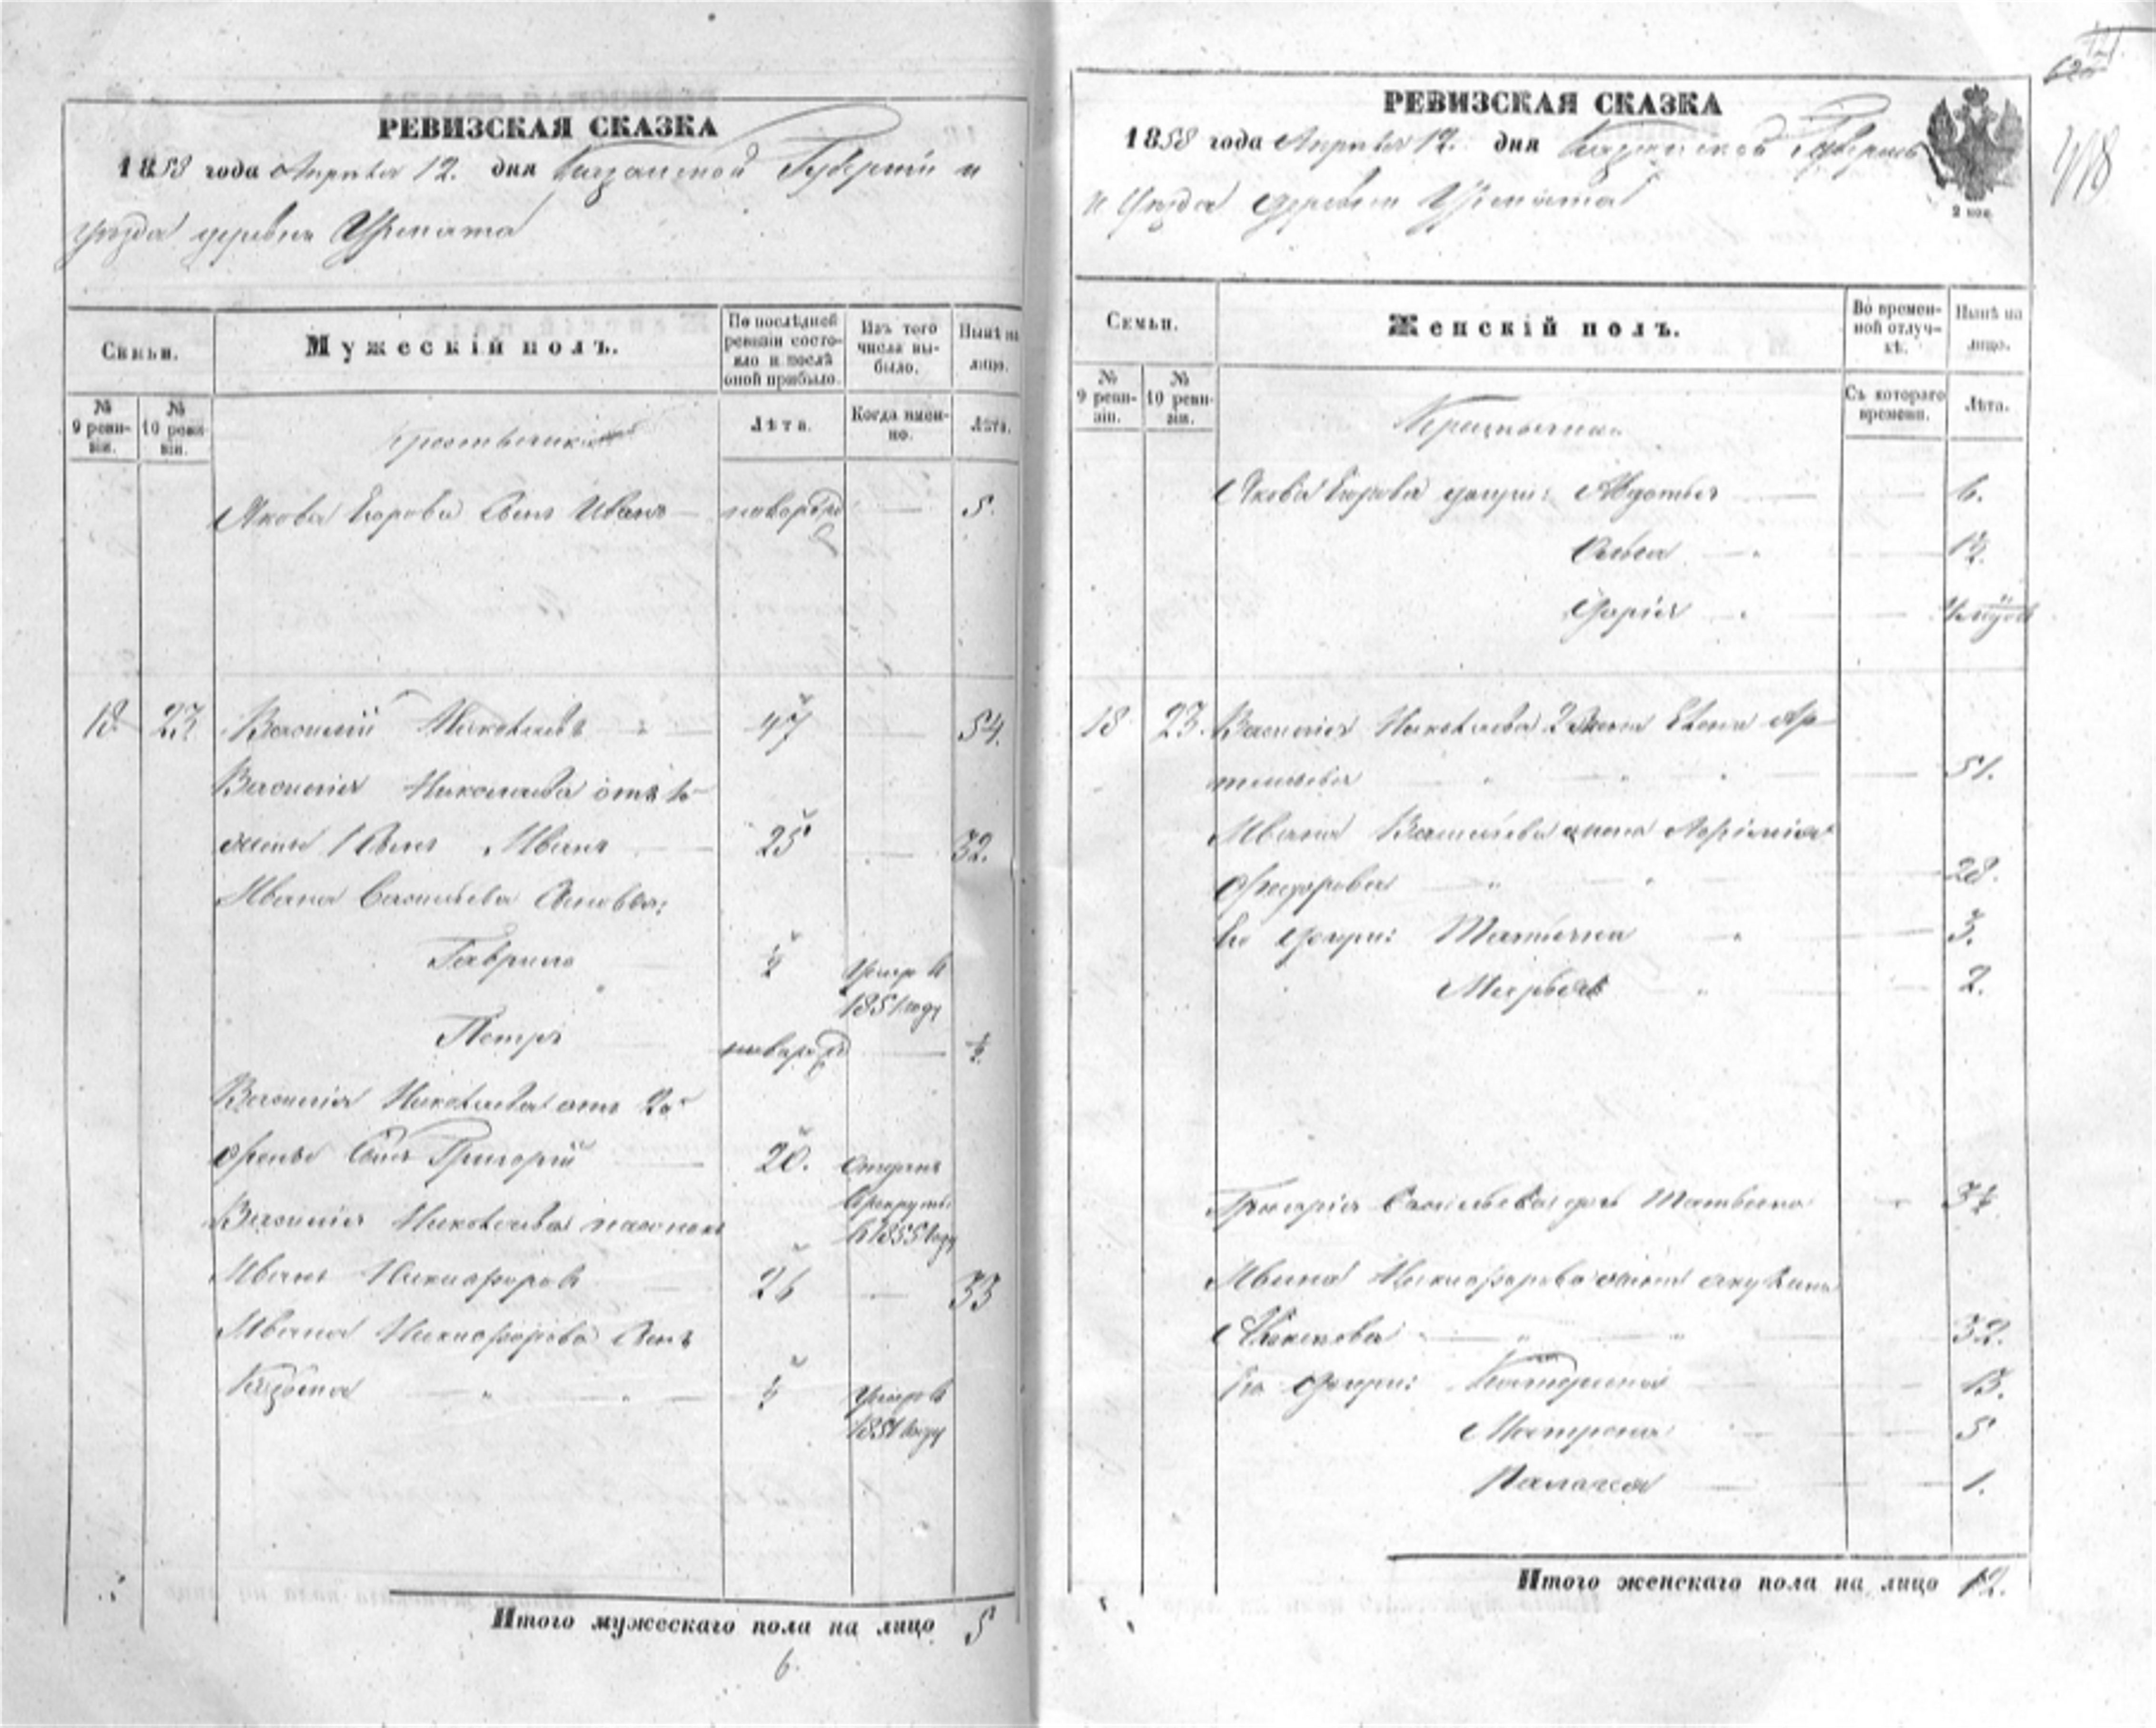 РЕВИЗСКАЯ СКАЗКА
1858 года Апреля 12. дня Казанской Губернии и
уезда деревни
Семьи.
Мужескій полъ.
По послѣдней ревизіи состояло и послѣ оной прибыло.
Изъ того числа выбыло.
Нынѣ на лицо.
№ 9 ревизіи.
№ 10 ревизіи.
Лѣта.
Когда именно.
Лѣта.
Якова Егорова сынъ Иванъ 5.
18. 23. Василий Николаевъ 47 54.
Василия Николаева отъ 1й
жены 1 сынъ Иванъ 25 32.
Ивана Васильева сыновья:
Гаврило умеръ в
1851 году
Петръ новорожд ½
Василия Николаева отъ 2й
жены сынъ Григорий 20. отданъ
в рекруты
в 1855 году
Василия Николаева пасынокъ
Иванъ Никифоровъ 26 33
Ивана Никифорова сынъ
Кузьма умеръ в
1851 году
Итого мужескаго пола на лицо 5
6.
РЕВИЗСКАЯ СКАЗКА
1858 года Апреля 12. дня Казанской Губернии
и уезда деревни
2 коп.
418
Семьи.
Женскій полъ.
Во временной отлучкѣ.
Нынѣ на лицо.
№ 9 ревизіи.
№ 10 ревизіи.
Съ котораго времени.
Лѣта.
Якова Егорова дочери: Авдотья 6.
Дарья
18 23. Василия Николаева 2 жена Елена Ар-
темьева 51.
Ивана Васильева жена
Федорова 28.
Его дочери: Татьяна 3.
Марфа 2.
Григория Васильева дочь Татьяна 3½
Ивана Никифорова жена Акулина
32.
Его дочери: Катерина 13.
Матрена 5
Палагея 1.
Итого женскаго пола на лицо 12.